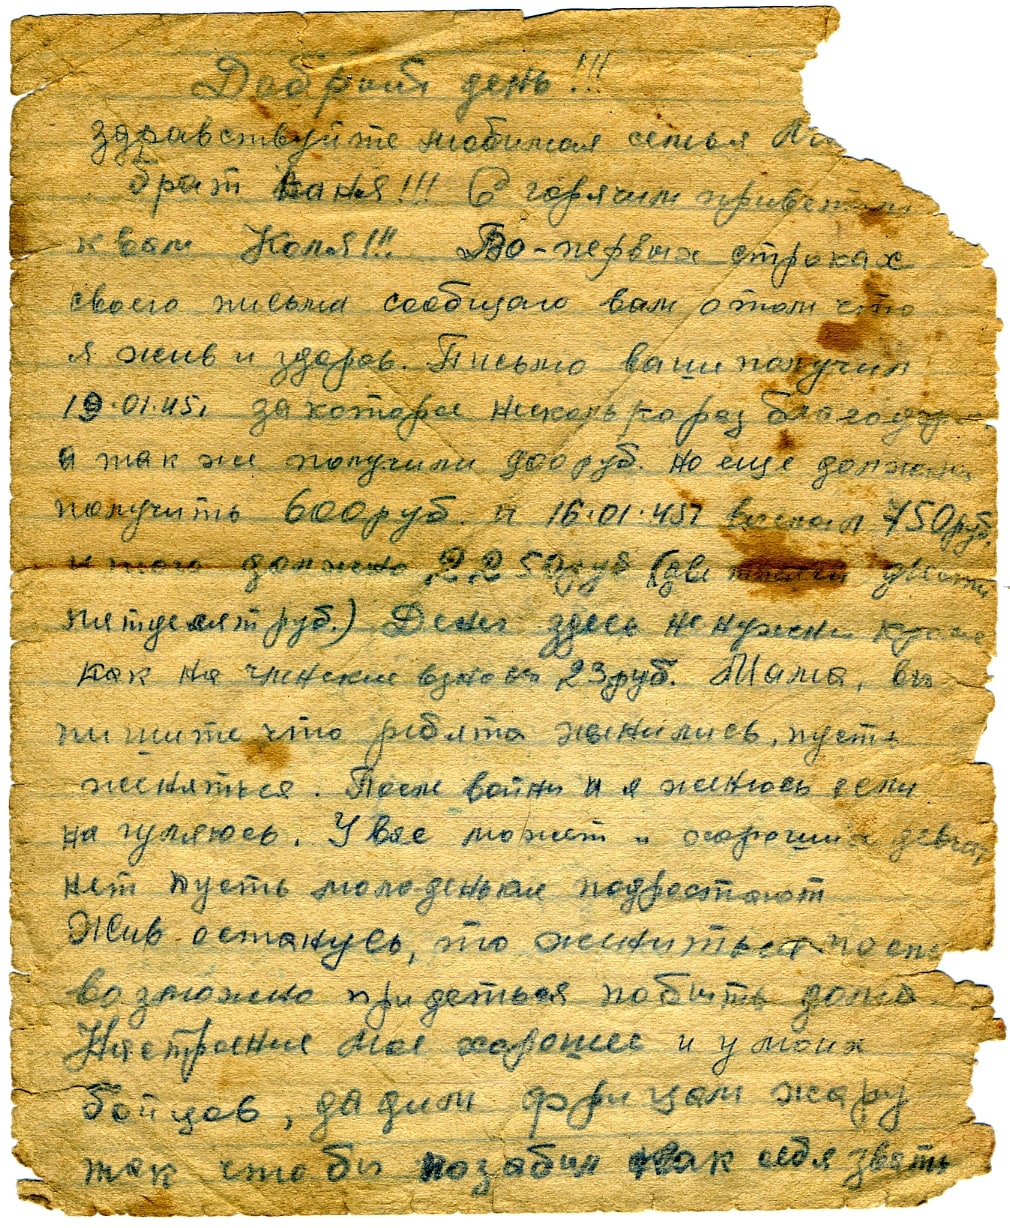 Добрый день!!!
здравствуйте любимая семья
брат Ваня!!! С горячим приветом
к вам Коля!!! Во-первых строках
своего письма сообщаю вам о том что
я жив и здоров. Письмо ваши получил
19.01.45г за которое несколько раз благодарю
а так же получили 900 руб. но еще должны
получить 600 руб. и 16.01.45г выслал 750 руб.
итого должно 2,250 руб (две тысячи двести
пятдесят руб.) Денег здесь не нужны кроме
как на членские взносы 23 руб. Мама, вы
пишите что ребята женились, пусть
женяться. После войны и я женюсь если
нагуляюсь. У вас может и хороших девчат
нет пусть молоденькие подростают
Жив останусь, то жениться поспею
возможно придеться побыть дома.
Настроение мое хорошее и у моих
бойцов, дадим фрицам жару
так что бы позабыл как себя звать